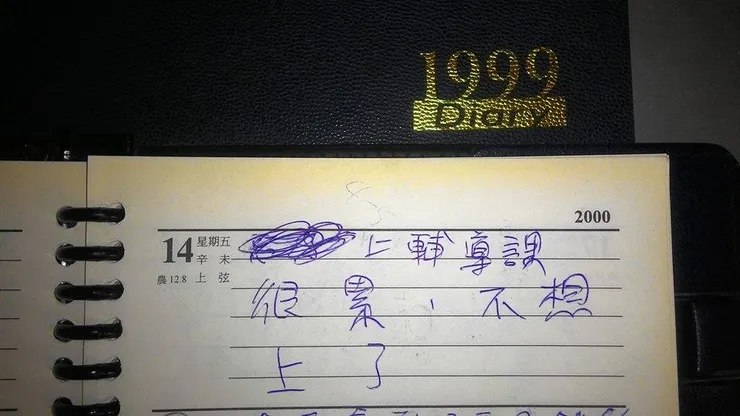 1999
Diary
2000
14 星期五
辛未
農12.8 上弦
上輔導課
很累，不想
上了